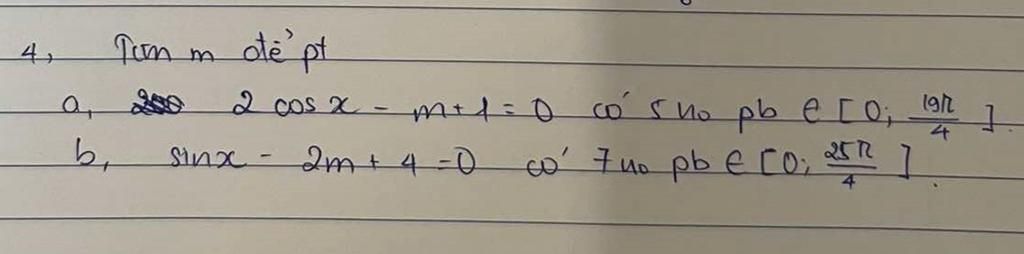 4, Tìm m để pt
a, 2 cos x - m + 1 = 0 có 5 no pb ∈ [0; 19π/4].
b, sinx - 2m + 4 = 0 có 7 no pb ∈ [0; 25π/4].